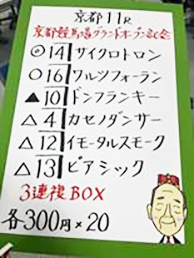 京都11R
京都競馬場グランドオープン記念
◎14サイクロトロン
○16ワルツフォーラン
▲10ドンフランキー
△4カセノダンサー
△12イモータルスモーク
△13ビアシック
3連複BOX
各300円×20